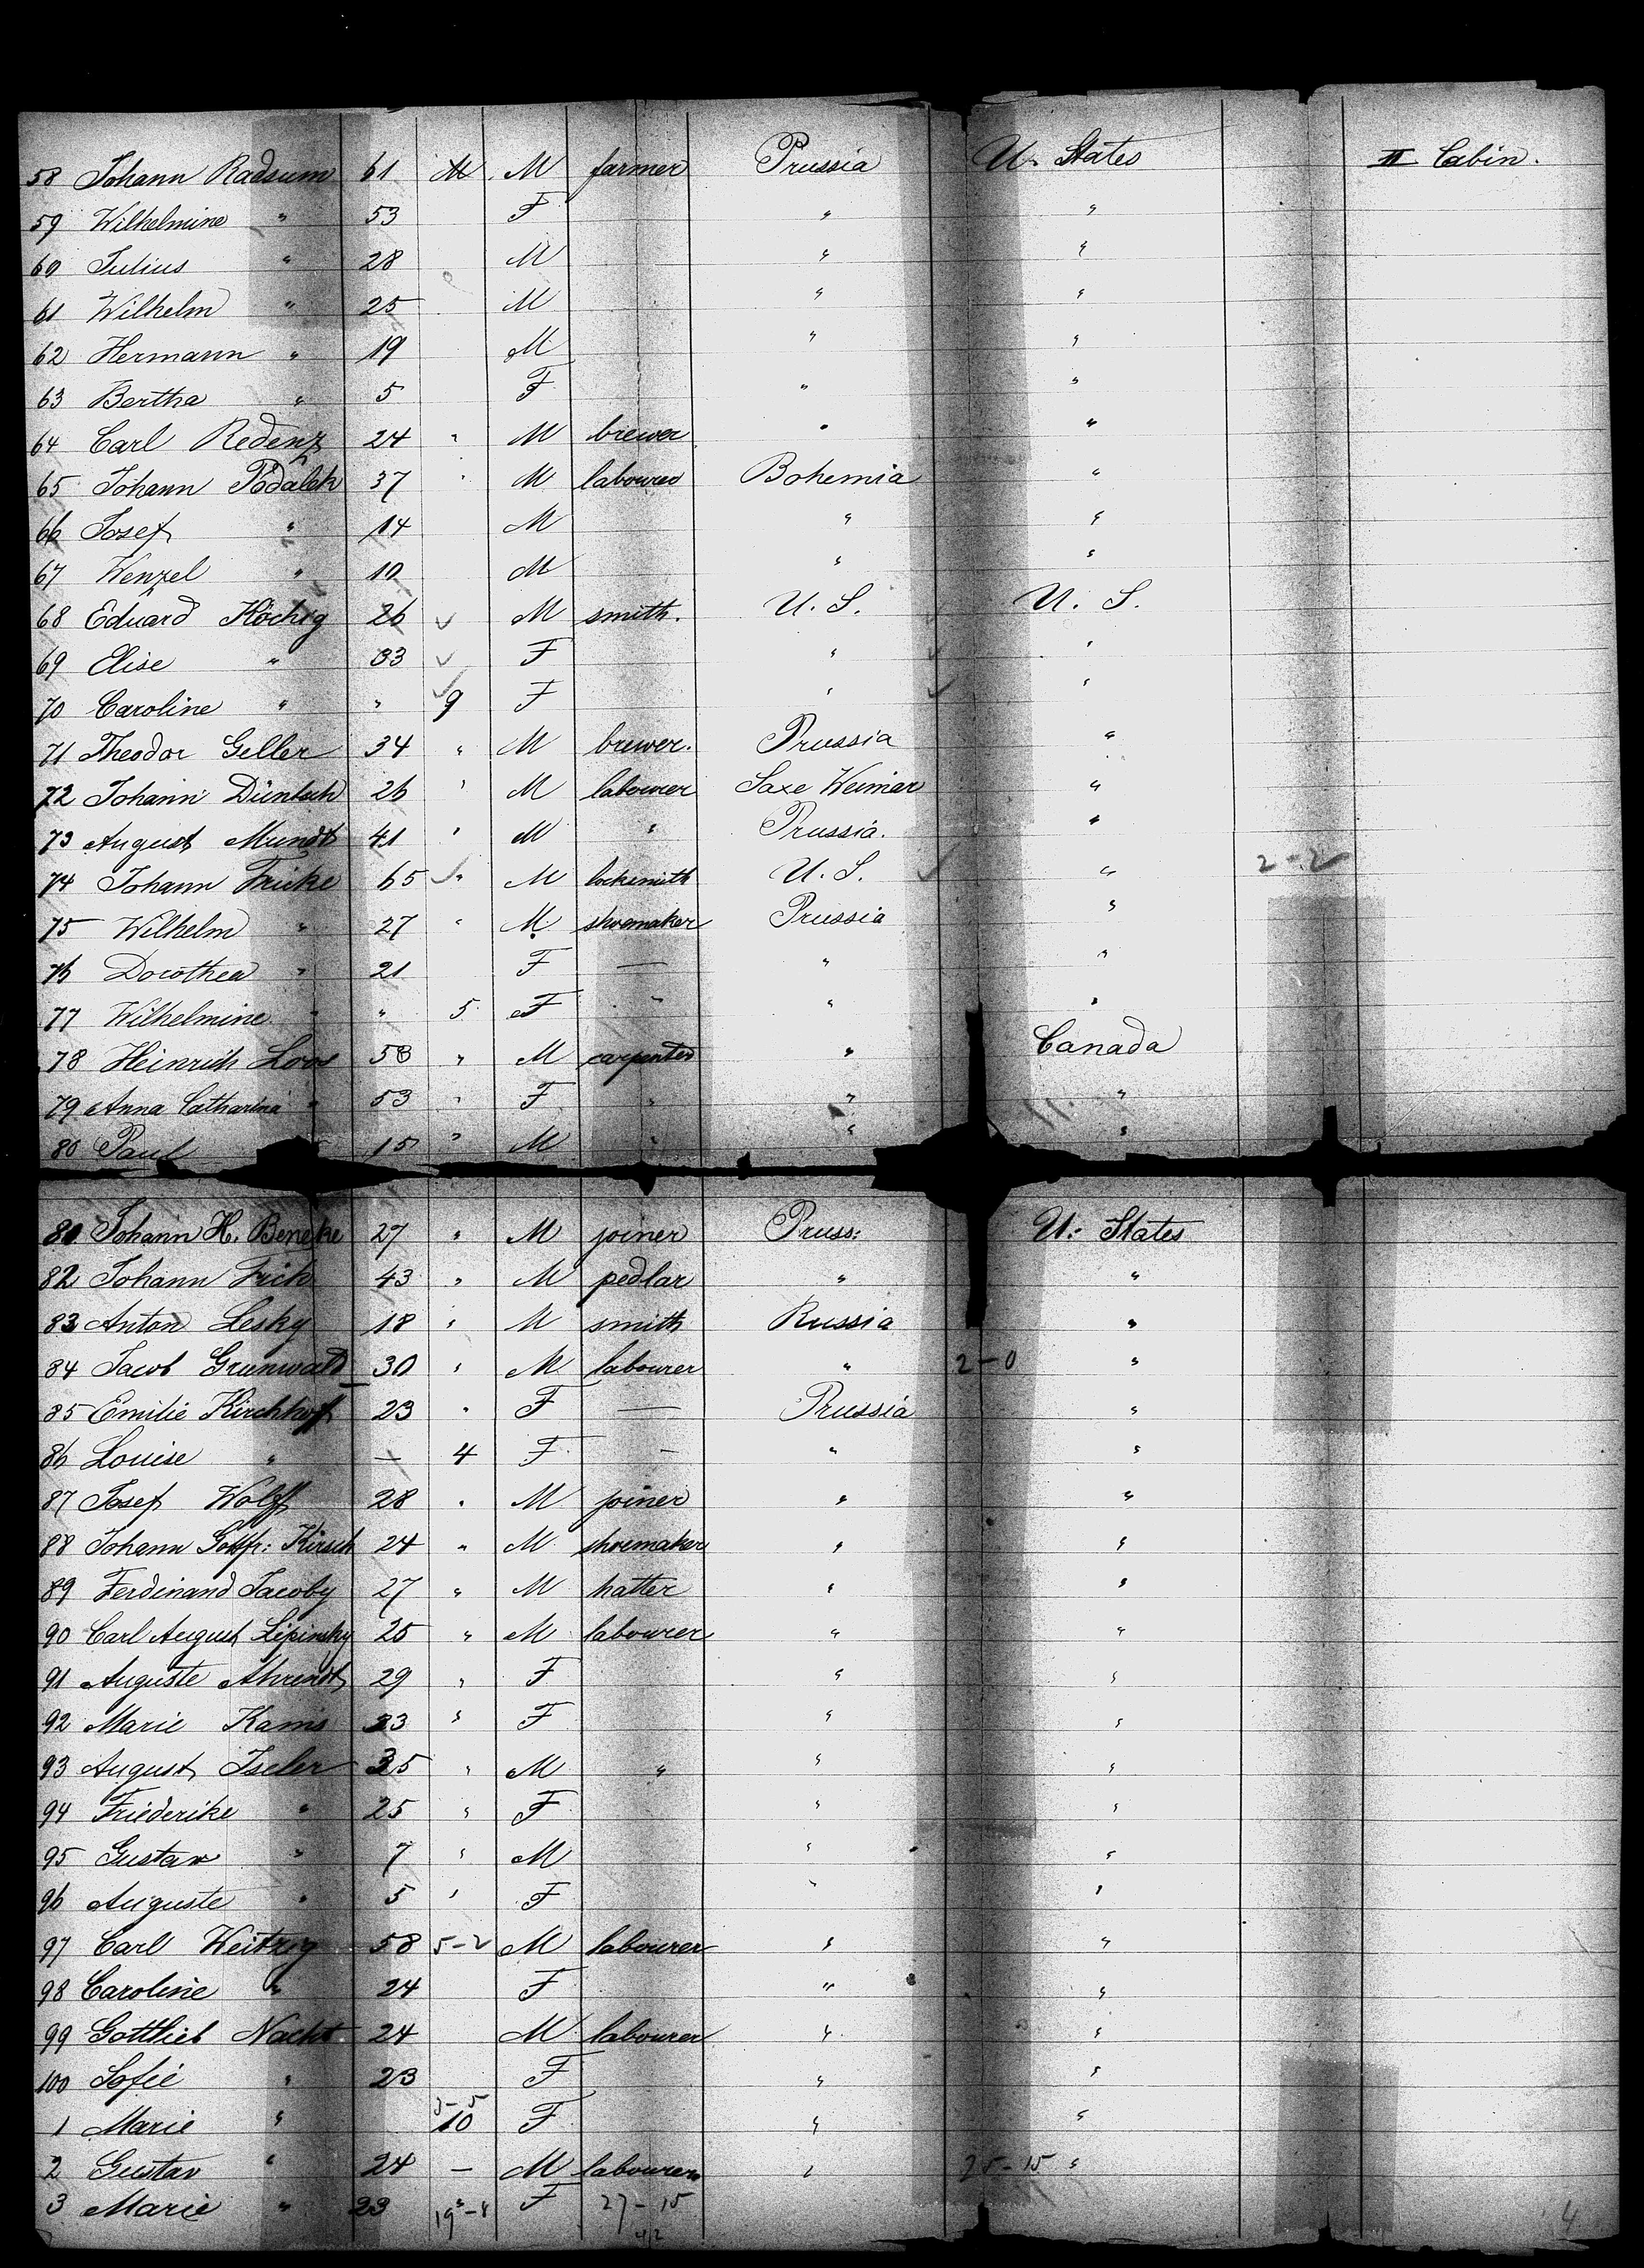 58 Johann Radsum 61 M. M farmer Prussia U. States II Cabin.
59 Wilhelmine " 53 F " "
60 Julius " 28 M " "
61 Wilhelm " 25 M " "
62 Hermann " 19 M " "
63 Bertha " 5 F " "
64 Carl Redenz 24 " M brewer " "
65 Johann 37 " M labourer Bohemia "
66 Josef " 14 M " "
67 Wenzel " 10 M " "
68 Eduard 26 M smith. U. S. U. S.
69 Elise " 33 F " "
70 Caroline " " 9 F " "
71 Theodor Geller 34 " M brewer. Prussia "
72 Johann 26 " M labourer Saxe Weimar "
73 August Mundt 41 " M " Prussia. "
74 Johann Fricke 65 " M locksmith U. S. " 2-2
75 Wilhelm " 27 " M. shoemaker Prussia "
76 Dorothea " 21 F — " "
77 Wilhelmine " " 5 F " " "
78 Heinrich Loos 58 " M carpenter " Canada
79 Anna Catharina " 53 " F " " "
80 Paul 15 " M " " "
81 Johann H. Beneke 27 " M joiner Pruss: U: States
82 Johann Frick 43 " M pedlar " "
83 Anton Lesky 18 " M smith Russia "
84 Jacob Grunwald 30 " M labourer " 2-0 "
85 Emilie Kirchhoff 23 " F — Prussia "
86 Louise " — 4 F — " "
87 Josef Wolff 28 " M joiner " "
88 Johann Gottfr: Kirsch 24 " M shoemaker " "
89 Ferdinand Jacoby 27 " M hatter " "
90 Carl August Lipinsky 25 " M labourer " "
91 Auguste Ahrendt 29 " F " "
92 Marie Kamis 23 " F " "
93 August Iseler 35 " M " " "
94 Friederike " 25 " F " "
95 Gustav " 7 " M " "
96 Auguste " 5 " F " "
97 Carl Weitzig 58 5-2 M labourer " "
98 Caroline " 24 F " "
99 Gottlieb Nacht 24 M labourer " "
100 Sofie " 23 F " "
1 Marie " 10 F " "
2 Gustav " 24 — M labourer " 25-15 "
3 Marie " 23 F 27-15
4